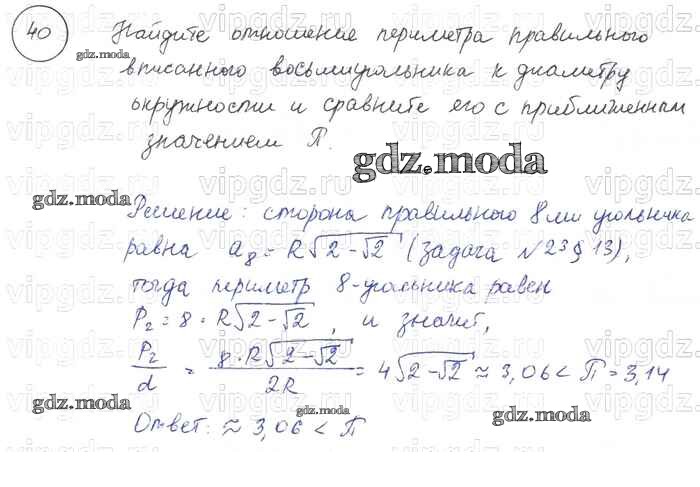 40 Найдите отношение периметра правильного
вписанного восьмиугольника к диаметру
окружности и сравните его с приближенным
значением П.
gdz.moda
Решение: сторона правильного 8ми угольника
равна a₈ = R√(2-√2) (задача №23 § 13),
тогда периметр 8-угольника равен
P₂ = 8·R√(2-√2), и значит,
P₂/d = 8·R√(2-√2)/2R = 4√(2-√2) ≈ 3,06 < П = 3,14
Ответ: ≈ 3,06 < П